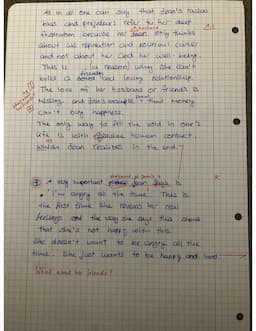 All in all one can say that Jean's racial
bias and prejudices refer to her deep
frustration because her husband only thinks
about his reputation and political career
and not about her and her well-being.
This is (a reason) why she can't
build a friendly and loving relationship.
The love of her husband or friends is
missing and Jean's example that money
can't buy happiness.
The only way to fill the void in one's
life is with genuine human contact.
which Jean realises in the end.
A very important statement of Jean's is
"I'm angry all the time". This is
the first time she reveals her real
feelings and the way she says this shows
that she's not happy with this.
She doesn't want to be angry all the
time. She just wants to be happy and
What about her friends?